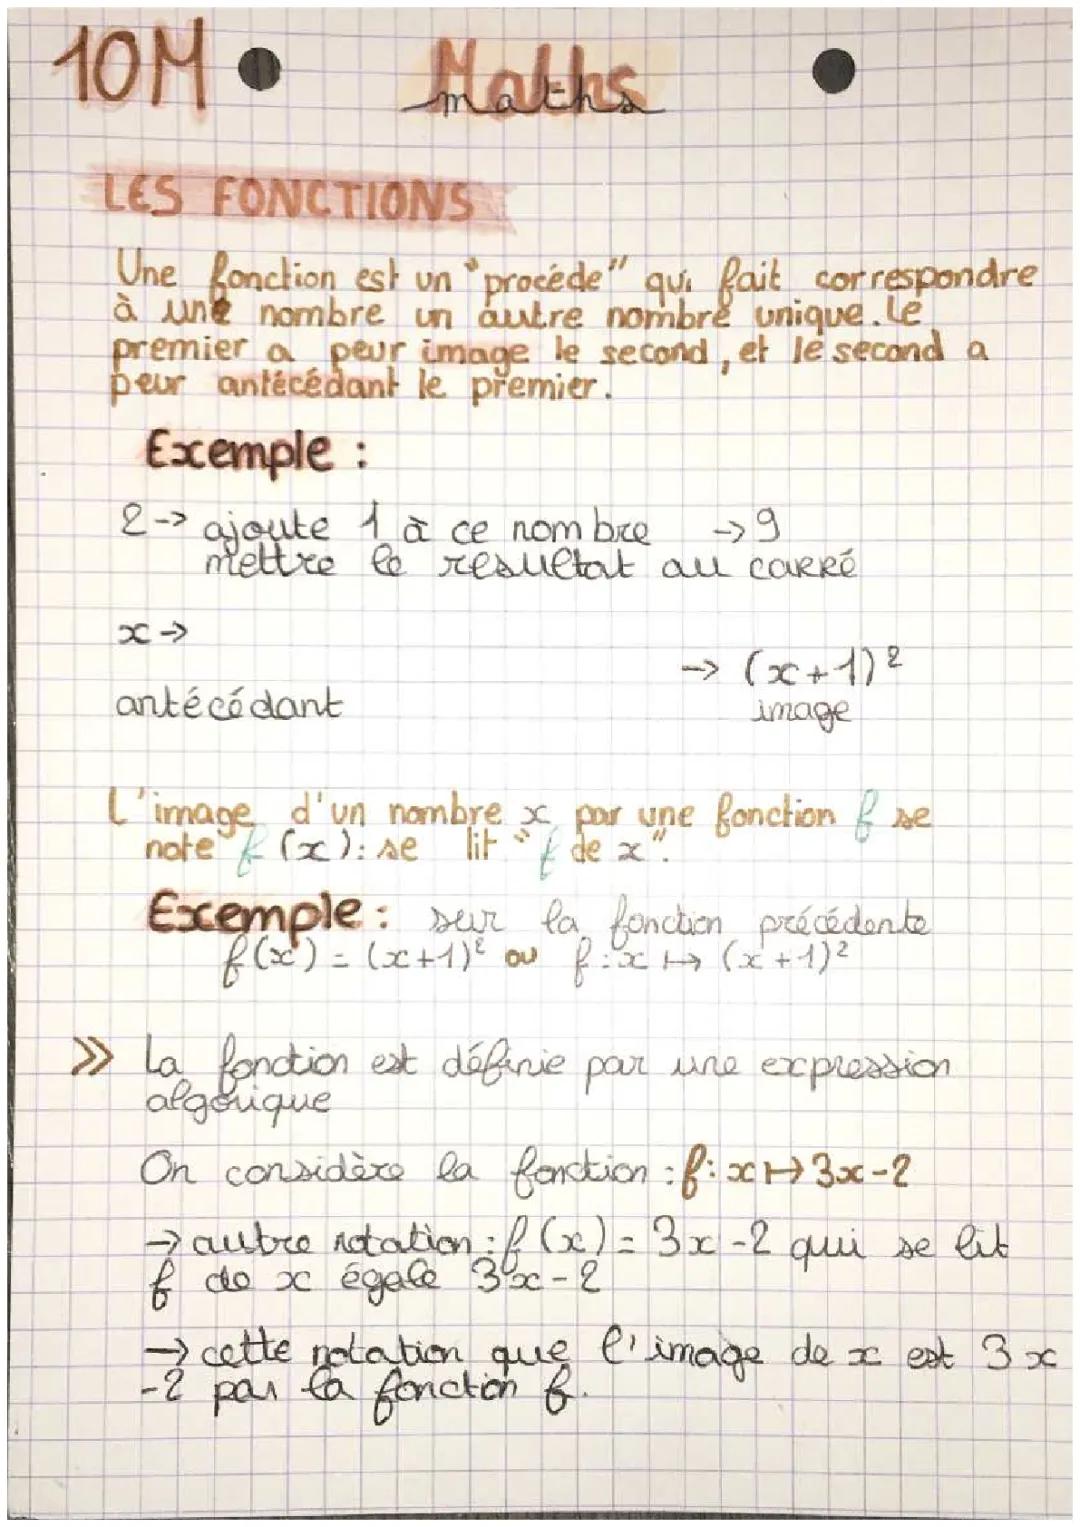 10M Maths
maths
LES FONCTIONS
Une fonction est un "procéde" qui fait correspondre
à une nombre un autre nombre unique. Le
premier a peur image le second, et le second a
peur antécédant le premier.
Exemple :
2 -> ajoute 1 à ce nombre -> 9
mettre le resultat au carré
x ->
-> (x+1)²
antécédant image
L'image d'un nombre x par une fonction f se
note f (x): se lit "f de x".
Exemple : sur la fonction précédente
f(x) = (x+1)² ou f : x ↦ (x+1)²
>> La fonction est définie par une expression
algérique
On considère la fonction : f: x ↦ 3x-2
→ autre notation : f (x) = 3x-2 qui se lit
f de x égale 3x-2
→ cette notation que l'image de x est 3x
-2 par la fonction f.